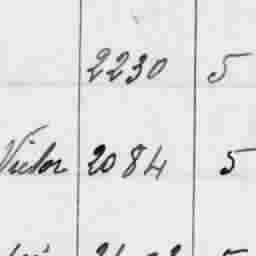 2230 5
Victor 2084 5